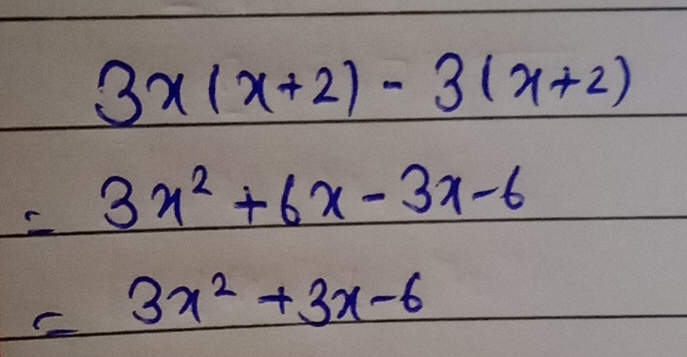 3x(x+2) - 3(x+2)
= 3x² + 6x - 3x - 6
= 3x² + 3x - 6